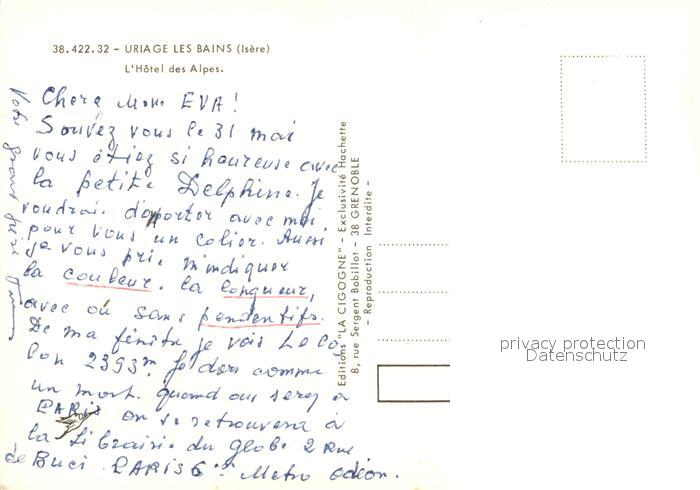 38.422.32 – URIAGE LES BAINS (Isère)
L'Hôtel des Alpes.
Chere Mme EVA!
Souvez vous le 31 mai
vous étiez si heureuse avec
la petite Delphine. Je
voudrai d'aporter avec moi
pour vous un colier. Aussi
je vous prie m'indiquer
la couleur. la longueur,
avec ou sans pendentifs.
De ma fenêtre je vois Le Co
lon 2393m. Je dors comme
un mort. quand ous serez à
PARIS on se retrouvera à
la Librairie du globe 2 Rue
de Buci. PARIS 6e Metro odéon.
Votre
Editions "LA CIGOGNE" - Exclusivité Hachette
8, rue Sergent Bobillot - 38 GRENOBLE
- Reproduction Interdite -
privacy protection
Datenschutz